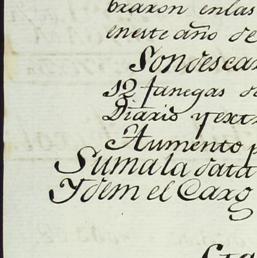 braron enlas
eneste año de
Sondescar
12 fanegas de
Diario y ext
Aumento p
Sumala data
Ydem el Carg